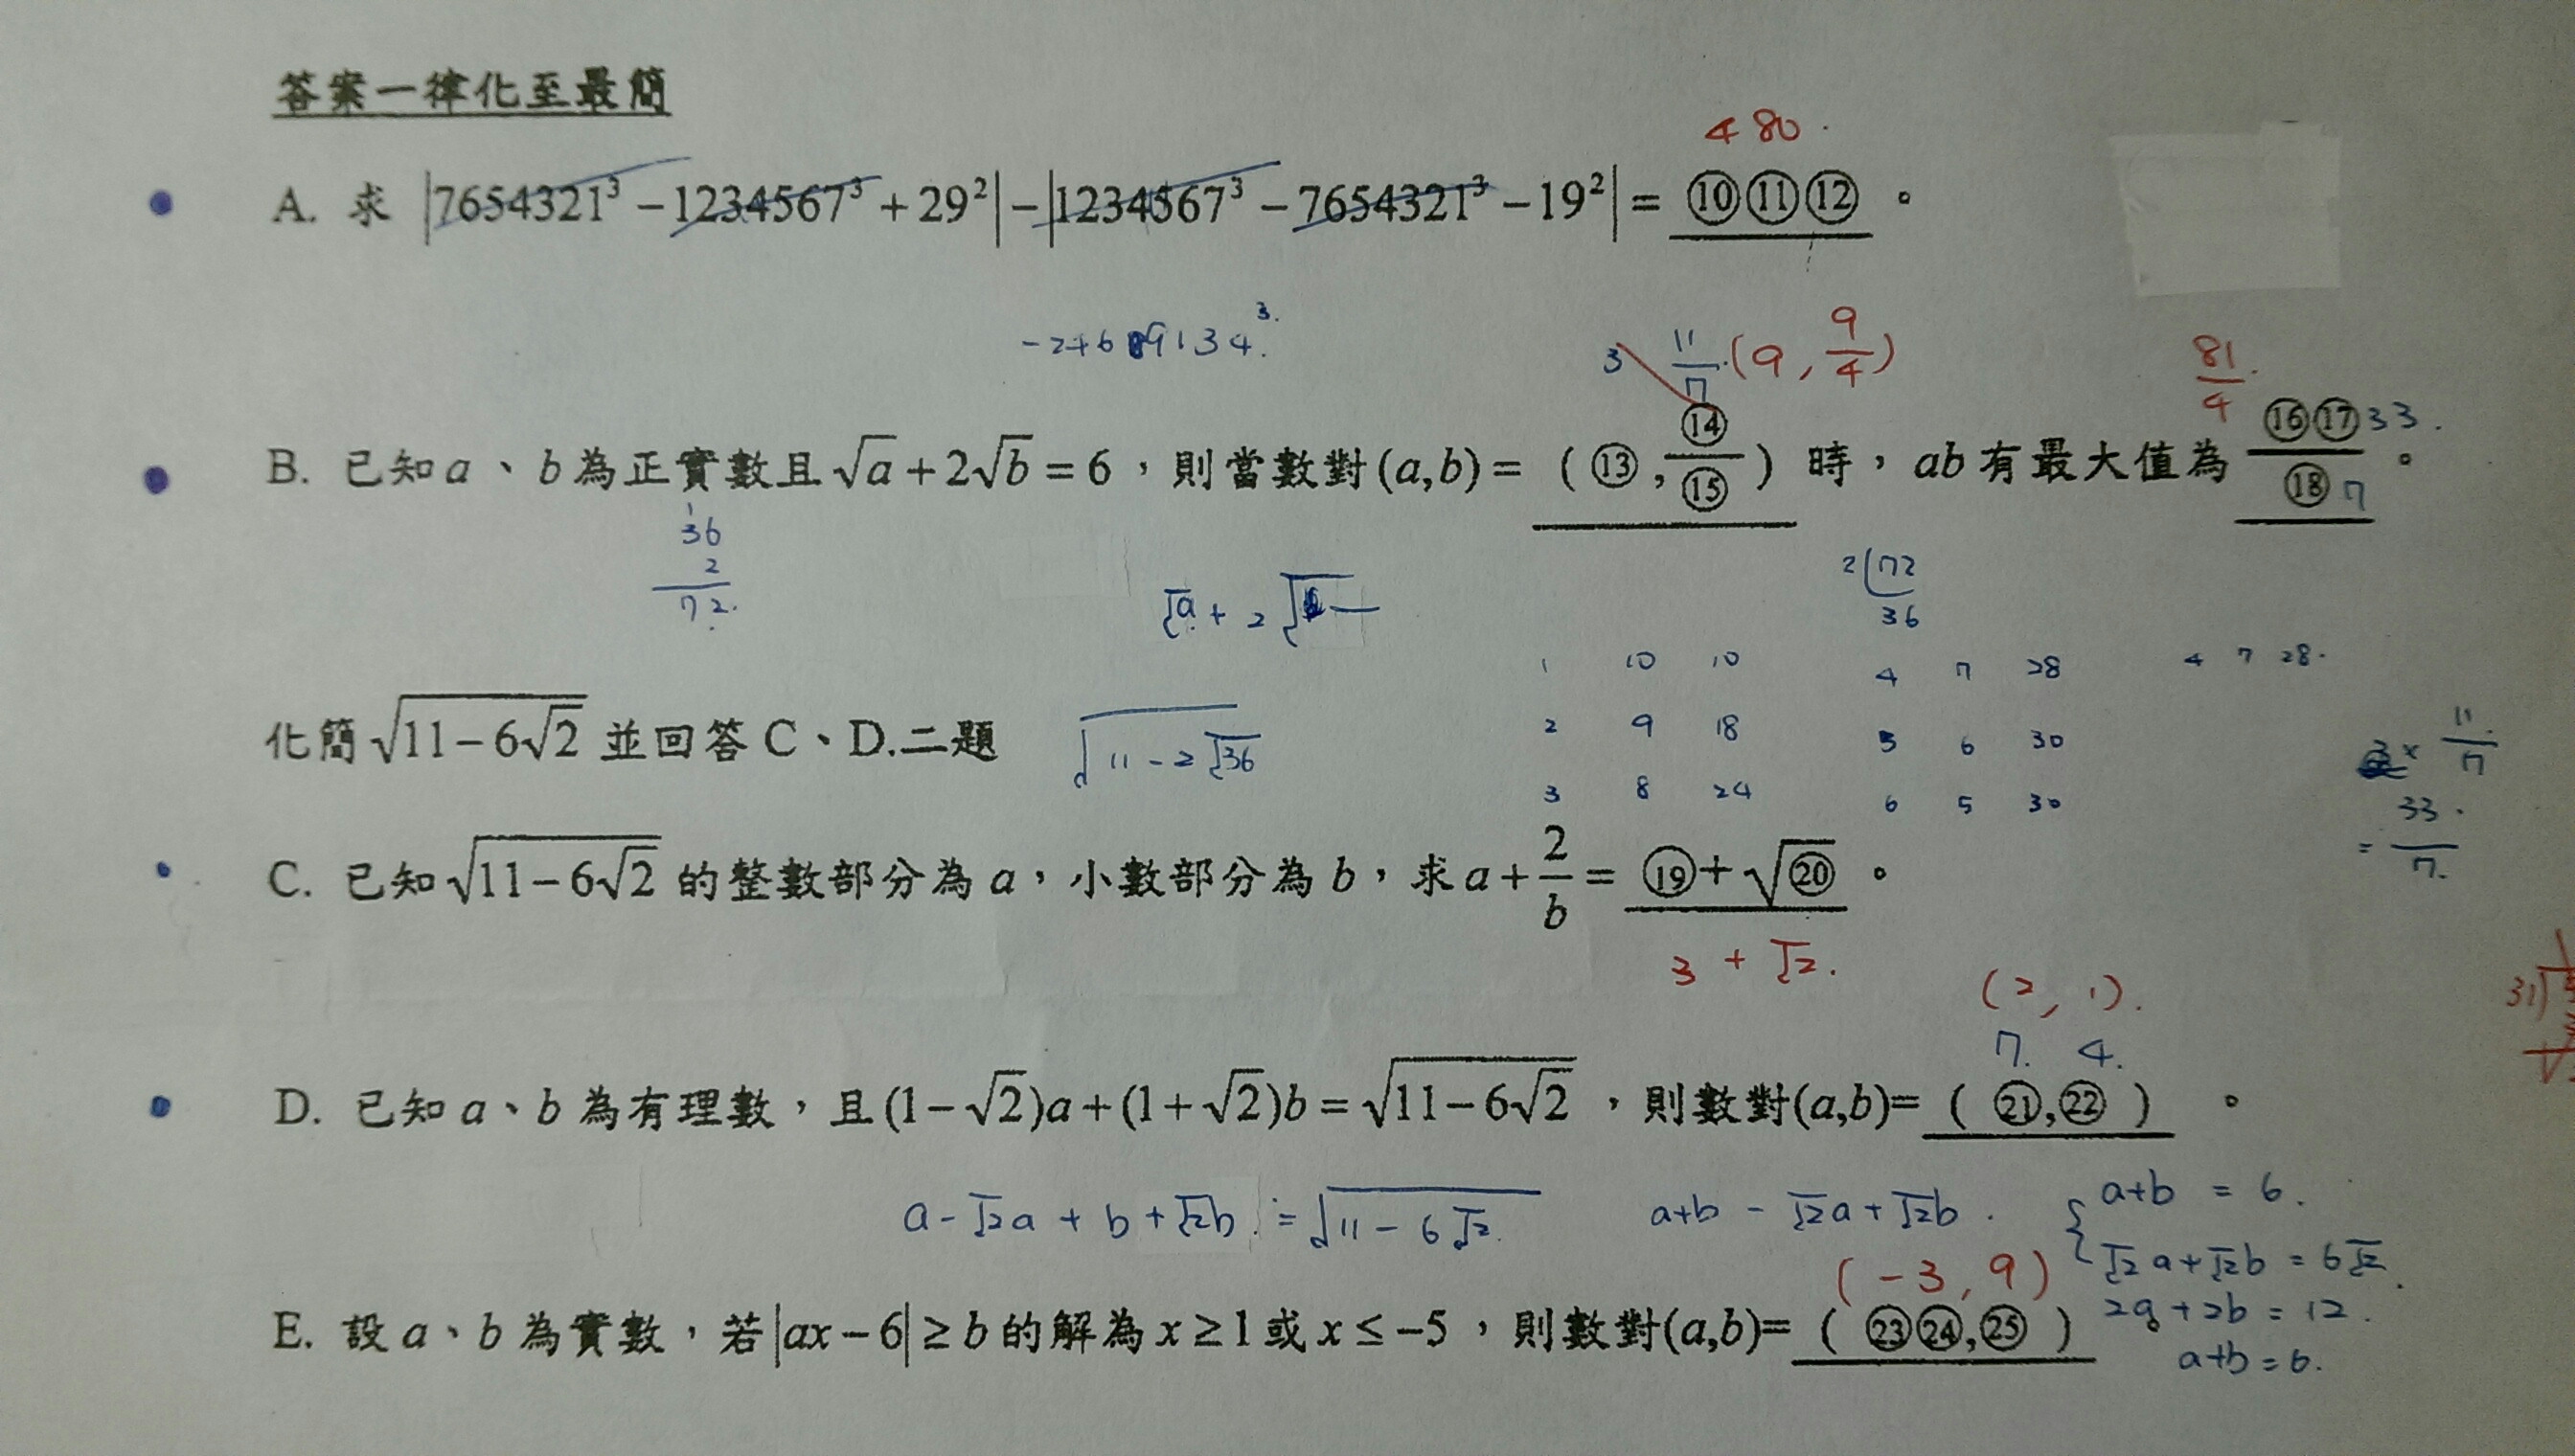 答案一律化至最簡
480.
A. 求 |7654321³ - 1234567³ + 29²| - |1234567³ - 7654321³ - 19²| = ⑩⑪⑫ 。
-24689134³.
3 11/7 . (9, 9/4) 81/4 .
B. 已知 a、b 為正實數且 √a + 2√b = 6，則當數對(a,b) = (⑬, ⑭/⑮) 時，ab 有最大值為 ⑯⑰/⑱ 。 33. 7
36
2
72.
√a + 2√
2 72
36
1 10 10 4 7 28 4 7 28.
化簡 √(11-6√2) 並回答 C、D.二題 √(11-2√36)
2 9 18 5 6 30
3 8 24 6 5 30
3 × 11/7
= 33/7.
C. 已知 √(11-6√2) 的整數部分為 a，小數部分為 b，求 a + 2/b = ⑲ + √⑳ 。
3 + √2.
31
(2, 1).
7. 4.
D. 已知 a、b 為有理數，且(1-√2)a + (1+√2)b = √(11-6√2)，則數對(a,b)= ( ㉑,㉒ ) 。
a - √2a + b + √2b = √(11-6√2) a+b - √2a + √2b. { a+b = 6.
√2a + √2b = 6√2.
(-3, 9)
E. 設 a、b 為實數，若 |ax-6| ≥ b 的解為 x ≥ 1 或 x ≤ -5，則數對(a,b)= ( ㉓㉔,㉕ )
2a + 2b = 12.
a+b = 6.